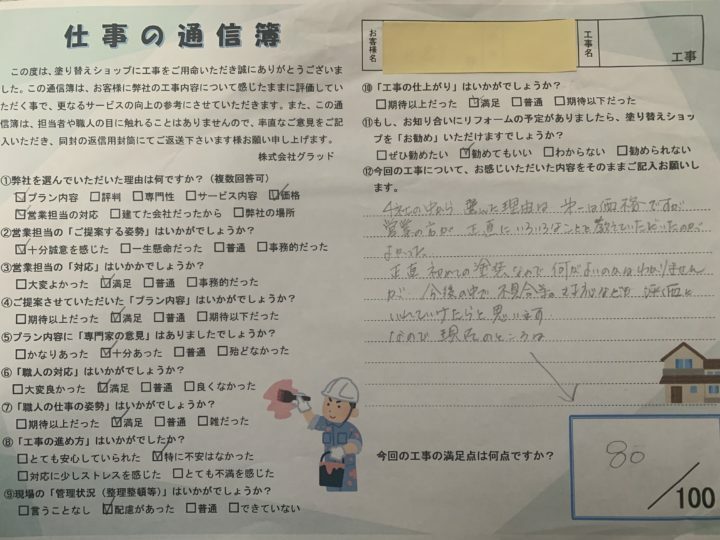 仕事の通信簿
この度は、塗り替えショップに工事をご用命いただき誠にありがとうございま
した。この通信簿は、お客様に弊社の工事内容について感じたままに評価してい
ただく事で、更なるサービスの向上の参考にさせていただきます。また、この通
信簿は、担当者や職人の目に触れることはありませんので、率直なご意見をご記
入いただき、同封の返信用封筒にてご返送下さいます様お願い申し上げます。
株式会社グラッド
①弊社を選んでいただいた理由は何ですか?(複数回答可)
☑プラン内容 □評判 □専門性 □サービス内容 ☑価格
☑営業担当の対応 □建てた会社だったから □弊社の場所
②営業担当の「ご提案する姿勢」はいかがでしょうか?
☑十分誠意を感じた □一生懸命だった □普通 □事務的だった
③営業担当の「対応」はいかかでしょうか?
□大変よかった ☑満足 □普通 □事務的だった
④ご提案させていただいた「プラン内容」はいかがでしょうか?
□期待以上だった ☑満足 □普通 □期待以下だった
⑤プラン内容に「専門家の意見」はありましたでしょうか?
□かなりあった ☑十分あった □普通 □殆どなかった
⑥「職人の対応」はいかがでしょうか?
□大変良かった ☑満足 □普通 □良くなかった
⑦「職人の仕事の姿勢」はいかがでしょうか?
□期待以上だった ☑満足 □普通 □雑だった
⑧「工事の進め方」はいかがでしたか?
□とても安心していられた ☑特に不安はなかった
□対応に少しストレスを感じた □とても不満を感じた
⑨現場の「管理状況(整理整頓等)」はいかがでしょうか?
□言うことなし ☑配慮があった □普通 □できていない
お客様名
工事名
工事
⑩「工事の仕上がり」はいかがでしょうか?
□期待以上だった ☑満足 □普通 □期待以下だった
⑪もし、お知り合いにリフォームの予定がありましたら、塗り替えショッ
プを「お勧め」いただけますでしょうか?
□ぜひ勧めたい ☑勧めてもいい □わからない □勧められない
⑫今回の工事について、お感じいただいた内容をそのままご記入お願いし
ます。
4社の中から選んだ理由は第一は価格ですが
営業の方が正直にいろいろなことを教えていただいたのが
よかった。
正直初めての塗装なので何がよいのかはわかりません
が 今後の中で不具合等の対応などが評価に
いれていけたらと思います
なので現在のところは
今回の工事の満足点は何点ですか?
80
/100